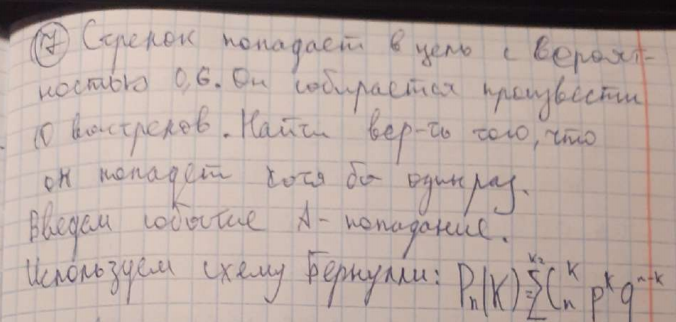 7 Стрелок попадает в цель с вероят-
ностью 0,6. Он собирается произвести
10 выстрелов. Найти вер-ть того, что
он попадет хотя бы один раз.
Введем событие A - попадание.
Используем схему Бернулли: Pₙ(K) = ∑ Cₙᴷ pᵏ qⁿ⁻ᵏ